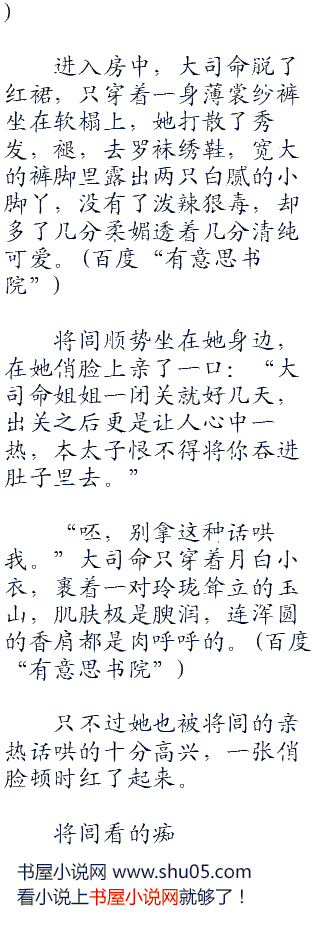 )
进入房中，大司命脱了
红裙，只穿着一身薄裳纱裤
坐在软榻上，她打散了秀
发，褪，去罗袜绣鞋，宽大
的裤脚里露出两只白腻的小
脚丫，没有了泼辣狠毒，却
多了几分柔媚透着几分清纯
可爱。(百度“有意思书
院”)
将闾顺势坐在她身边，
在她俏脸上亲了一口：“大
司命姐姐一闭关就好几天，
出关之后更是让人心中一
热，本太子恨不得将你吞进
肚子里去。”
“呸，别拿这种话哄
我。”大司命只穿着月白小
衣，裹着一对玲珑耸立的玉
山，肌肤极是腴润，连浑圆
的香肩都是肉呼呼的。(百度
“有意思书院”)
只不过她也被将闾的亲
热话哄的十分高兴，一张俏
脸顿时红了起来。
将闾看的痴
书屋小说网 www.shu05.com
看小说上书屋小说网就够了！